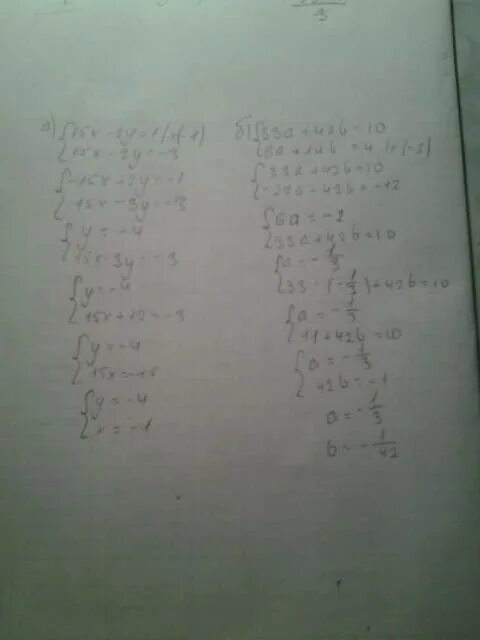 3
а) {15x - 2y = 1 | ·(-1)
15x - 3y = -3
{-15x + 2y = -1
15x - 3y = -3
{y = -4
15x - 3y = -3
{y = -4
15x + 12 = -3
{y = -4
15x = -15
{y = -4
x = -1
б) {33a + 42b = 10
9a + 14b = 4 | ·(-3)
{33a + 42b = 10
-27a - 42b = -12
{6a = -2
33a + 42b = 10
{a = -1/3
33 · (-1/3) + 42b = 10
{a = -1/3
11 + 42b = 10
{a = -1/3
42b = -1
a = -1/3
b = -1/42